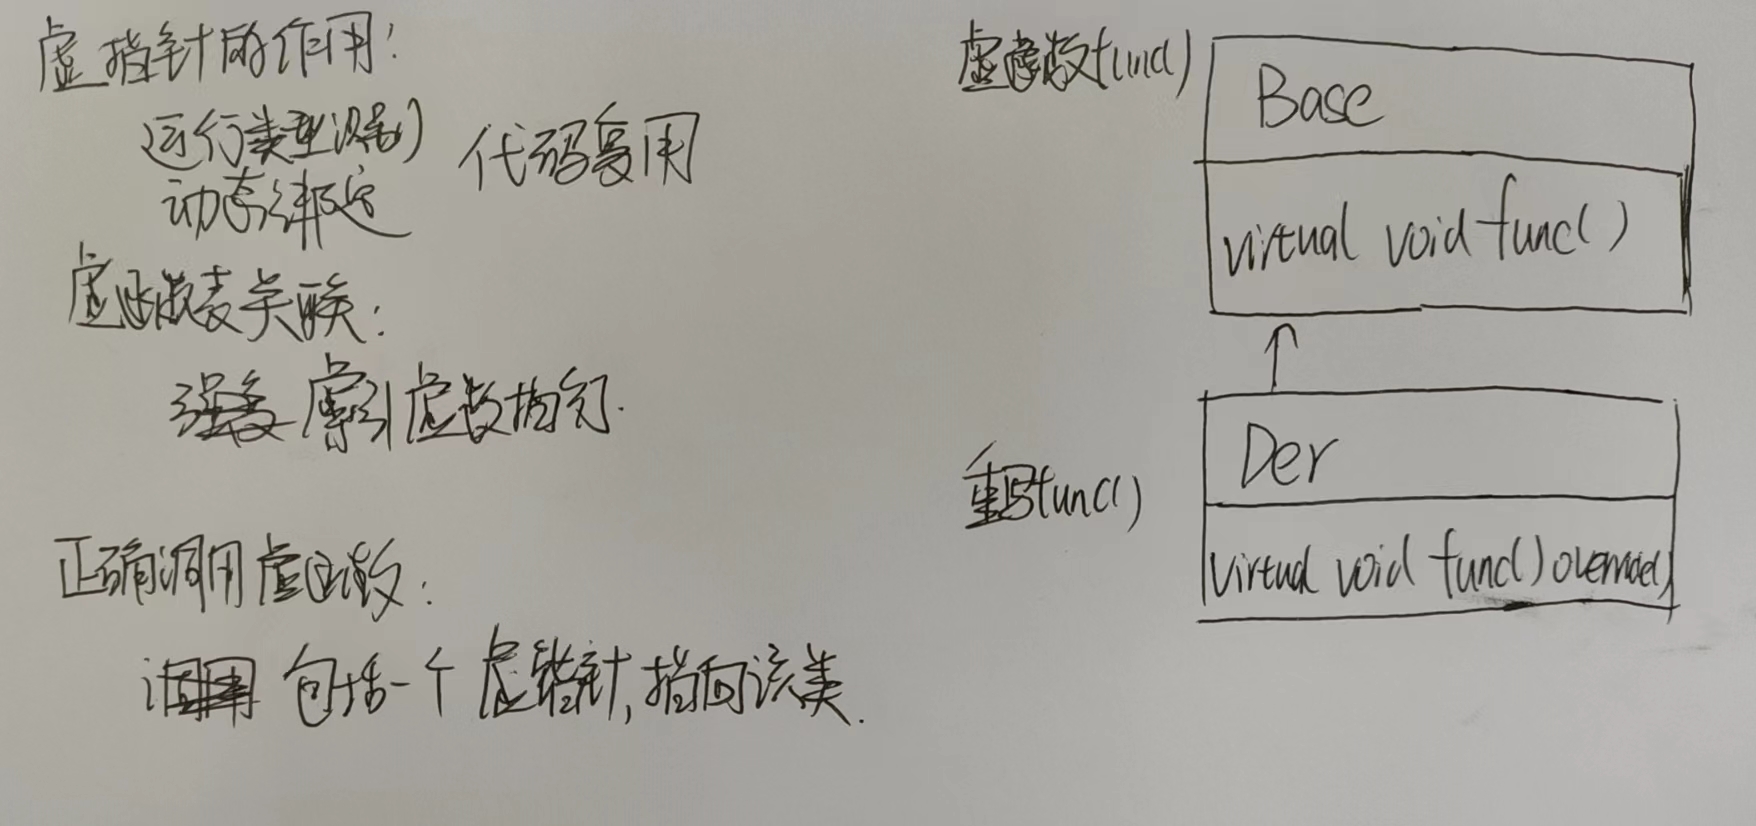 虚指针的作用：
运行类型识别
代码复用
动态绑定
虚函数表关联：
索引虚函数指针.
正确调用虚函数：
包括一个虚指针,指向该类.
虚函数func()
Base
virtual void func()
重写func()
Der
virtual void func() override